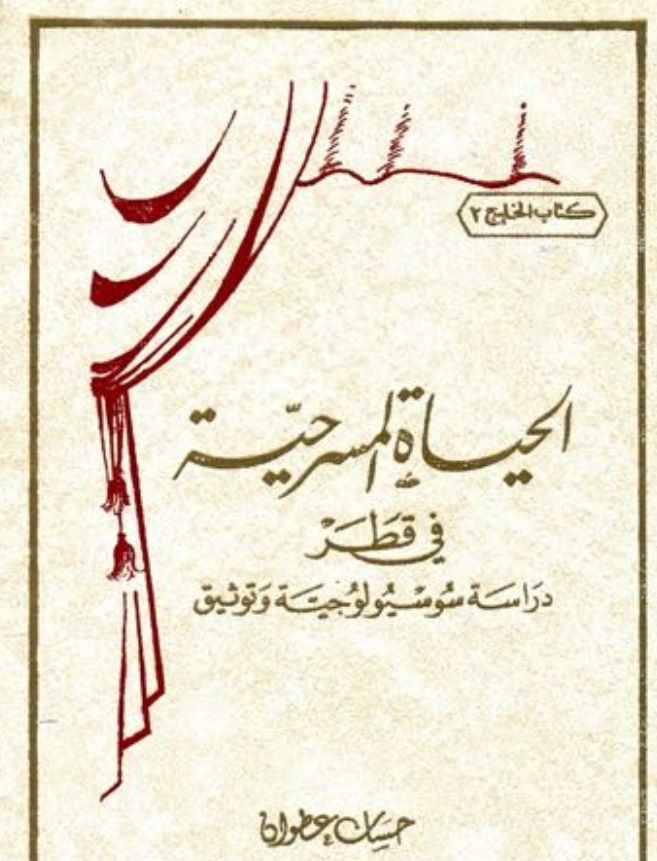 كتاب الخليج ٢
الحياة المسرحيّة
في قَطَرْ
دِرَاسَة سُوسْيُولوُجيَّة وَتَوثيق
حسان عطوان